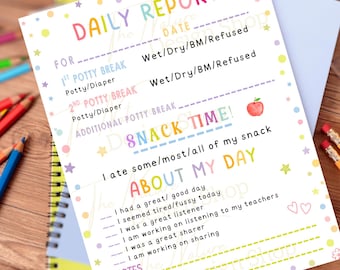 DAILY REPORT
DATE
FOR
1ST POTTY BREAK
Wet/Dry/BM/Refused
Potty/Diaper
2ND POTTY BREAK
Wet/Dry/BM/Refused
Potty/Diaper
ADDITIONAL POTTY BREAK
SNACK TIME!
I ate some/most/all of my snack
ABOUT MY DAY
I had a great/ good day
I seemed tired/fussy today
I was a great listener
I am working on listening to my teachers
I was a great sharer
I am working on sharing